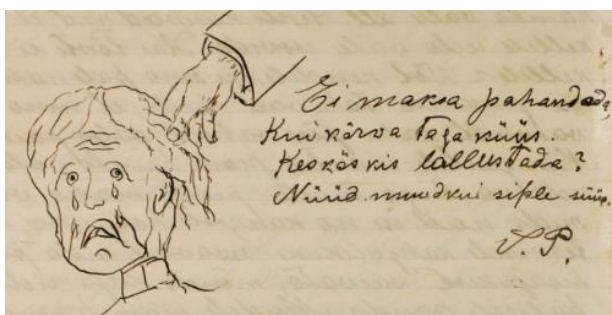 Ei maksa pahandada,
Kui kõrva taga küüs.
Kes käskis lällustada?
Nüüd muudkui siple süüs.
J. P.